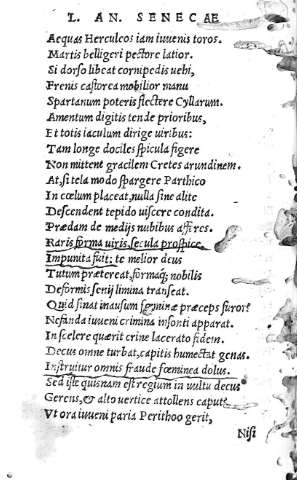 L. AN. SENECAE
Aequas Herculeos iam iuuenis toros.
Martis belligeri pectore latior.
Si dorso libeat cornipedis uehi,
Frenis castorea mobilior manu
Spartanum poteris flectere Cyllarum.
Amentum digitis tende prioribus,
Et totis iaculum dirige uiribus:
Tam longe dociles spicula figere
Non mittent gracilem Cretes arundinem.
At, si tela modo spargere Parthico
In cœlum placeat, nulla sine alite
Descendent tepido uiscere condita.
Prædam de medijs nubibus afferes.
Raris forma uiris, secula prospice,
Impunita fuit: te melior deus
Tutum prætereat, formaq; nobilis
Deformis senij limina transeat.
Quid sinat inausum fœminæ præceps furor?
Nefanda iuueni crimina insonti apparat.
In scelere quærit crine lacerato fidem.
Decus omne turbat, capitis humectat genas.
Instruitur omnis fraude fœminea dolus.
Sed iste quisnam est regium in uultu decus
Gerens, & alto uertice attollens caput?
Vt ora iuueni paria Perithoo gerit,
Nisi